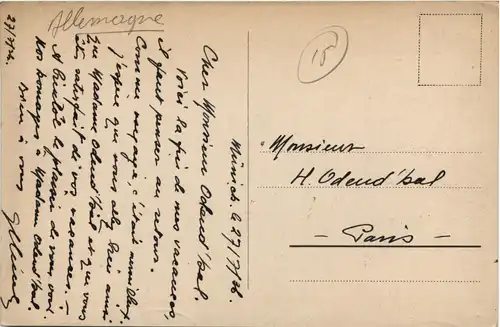 Allemagne
27/7/26.
15
Munich le 27/7/26
Cher Monsieur Odend'hal.
Voici la fin de nos vacances,
il faut penser au retour.
Comme voyage c'était merveilleux.
J'espère que vous allez bien ainsi
que Madame Odend'hal et que vous
êtes satisfait de vos vacances. —
A bientôt le plaisir de vous voir
Nos hommages à Madame Odend'hal
Bien à vous
Monsieur
H. Odend'hal
— Paris —